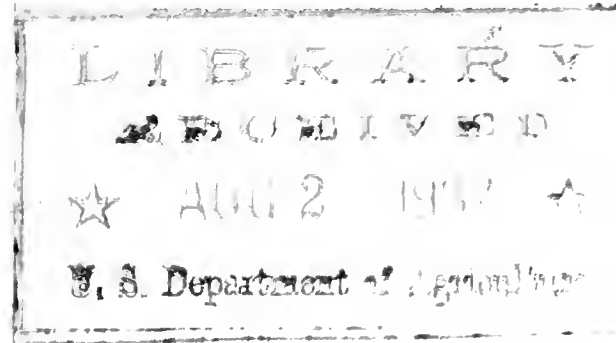 LIBRARY
RECEIVED
☆ AUG 2 ☆
U. S. Department of Agriculture